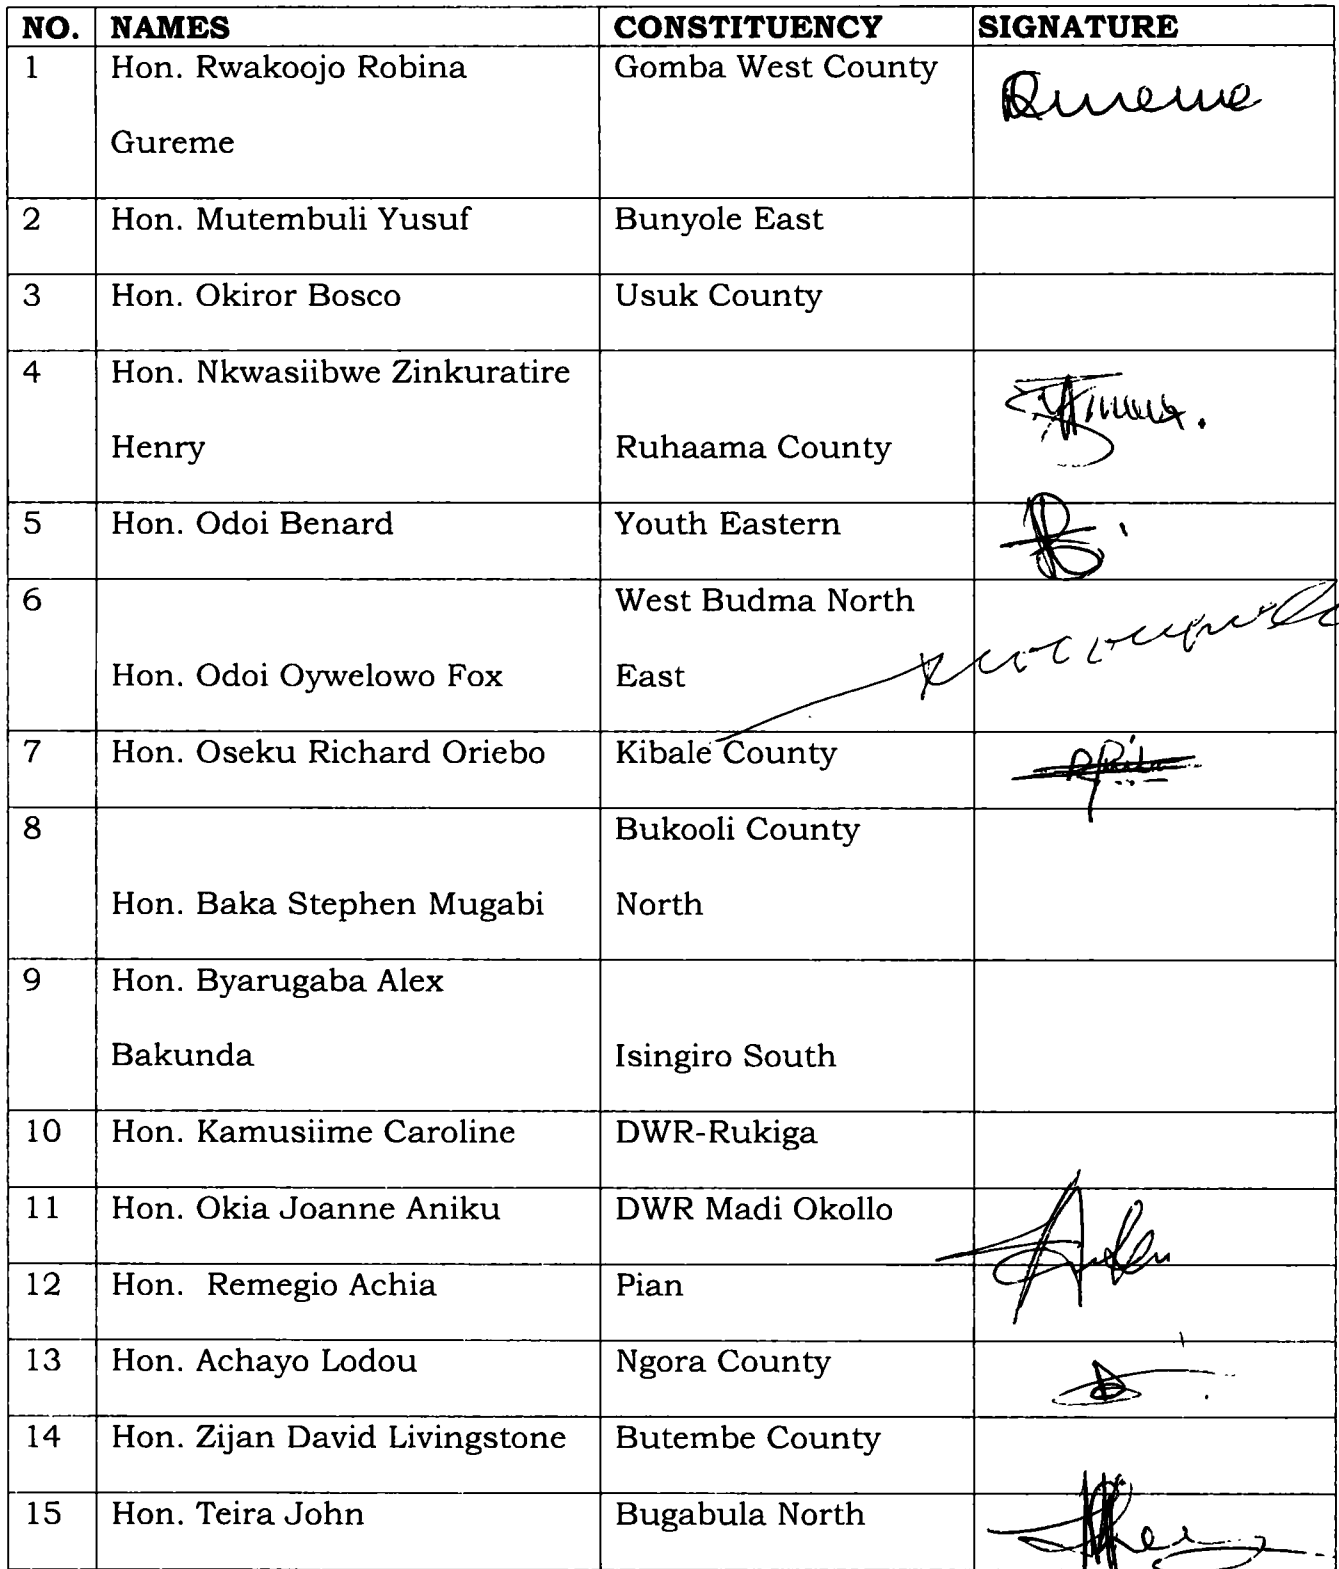 NO. NAMES CONSTITUENCY SIGNATURE
1 Hon. Rwakoojo Robina Gomba West County
Gureme
2 Hon. Mutembuli Yusuf Bunyole East
3 Hon. Okiror Bosco Usuk County
4 Hon. Nkwasiibwe Zinkuratire
Henry Ruhaama County
5 Hon. Odoi Benard Youth Eastern
6 West Budma North
Hon. Odoi Oywelowo Fox East
7 Hon. Oseku Richard Oriebo Kibale County
8 Bukooli County
Hon. Baka Stephen Mugabi North
9 Hon. Byarugaba Alex
Bakunda Isingiro South
10 Hon. Kamusiime Caroline DWR-Rukiga
11 Hon. Okia Joanne Aniku DWR Madi Okollo
12 Hon. Remegio Achia Pian
13 Hon. Achayo Lodou Ngora County
14 Hon. Zijan David Livingstone Butembe County
15 Hon. Teira John Bugabula North